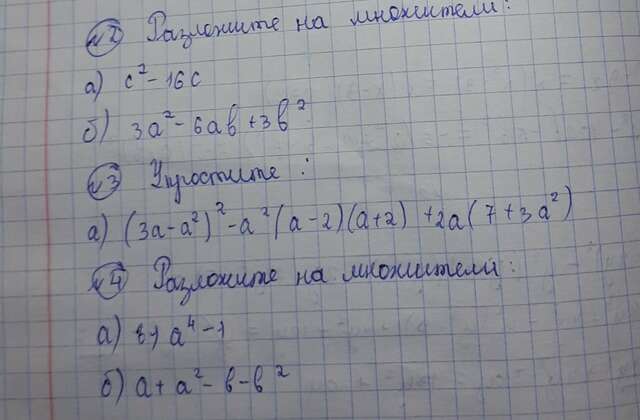 №2 Разложите на множители:
а) c² - 16c
б) 3а² - 6ав + 3в²
№3 Упростите:
а) (3а - а²)² - а²(а - 2)(а + 2) + 2а(7 + 3а²)
№4 Разложите на множители:
а) а⁴ - 1
б) а + а² - в - в²